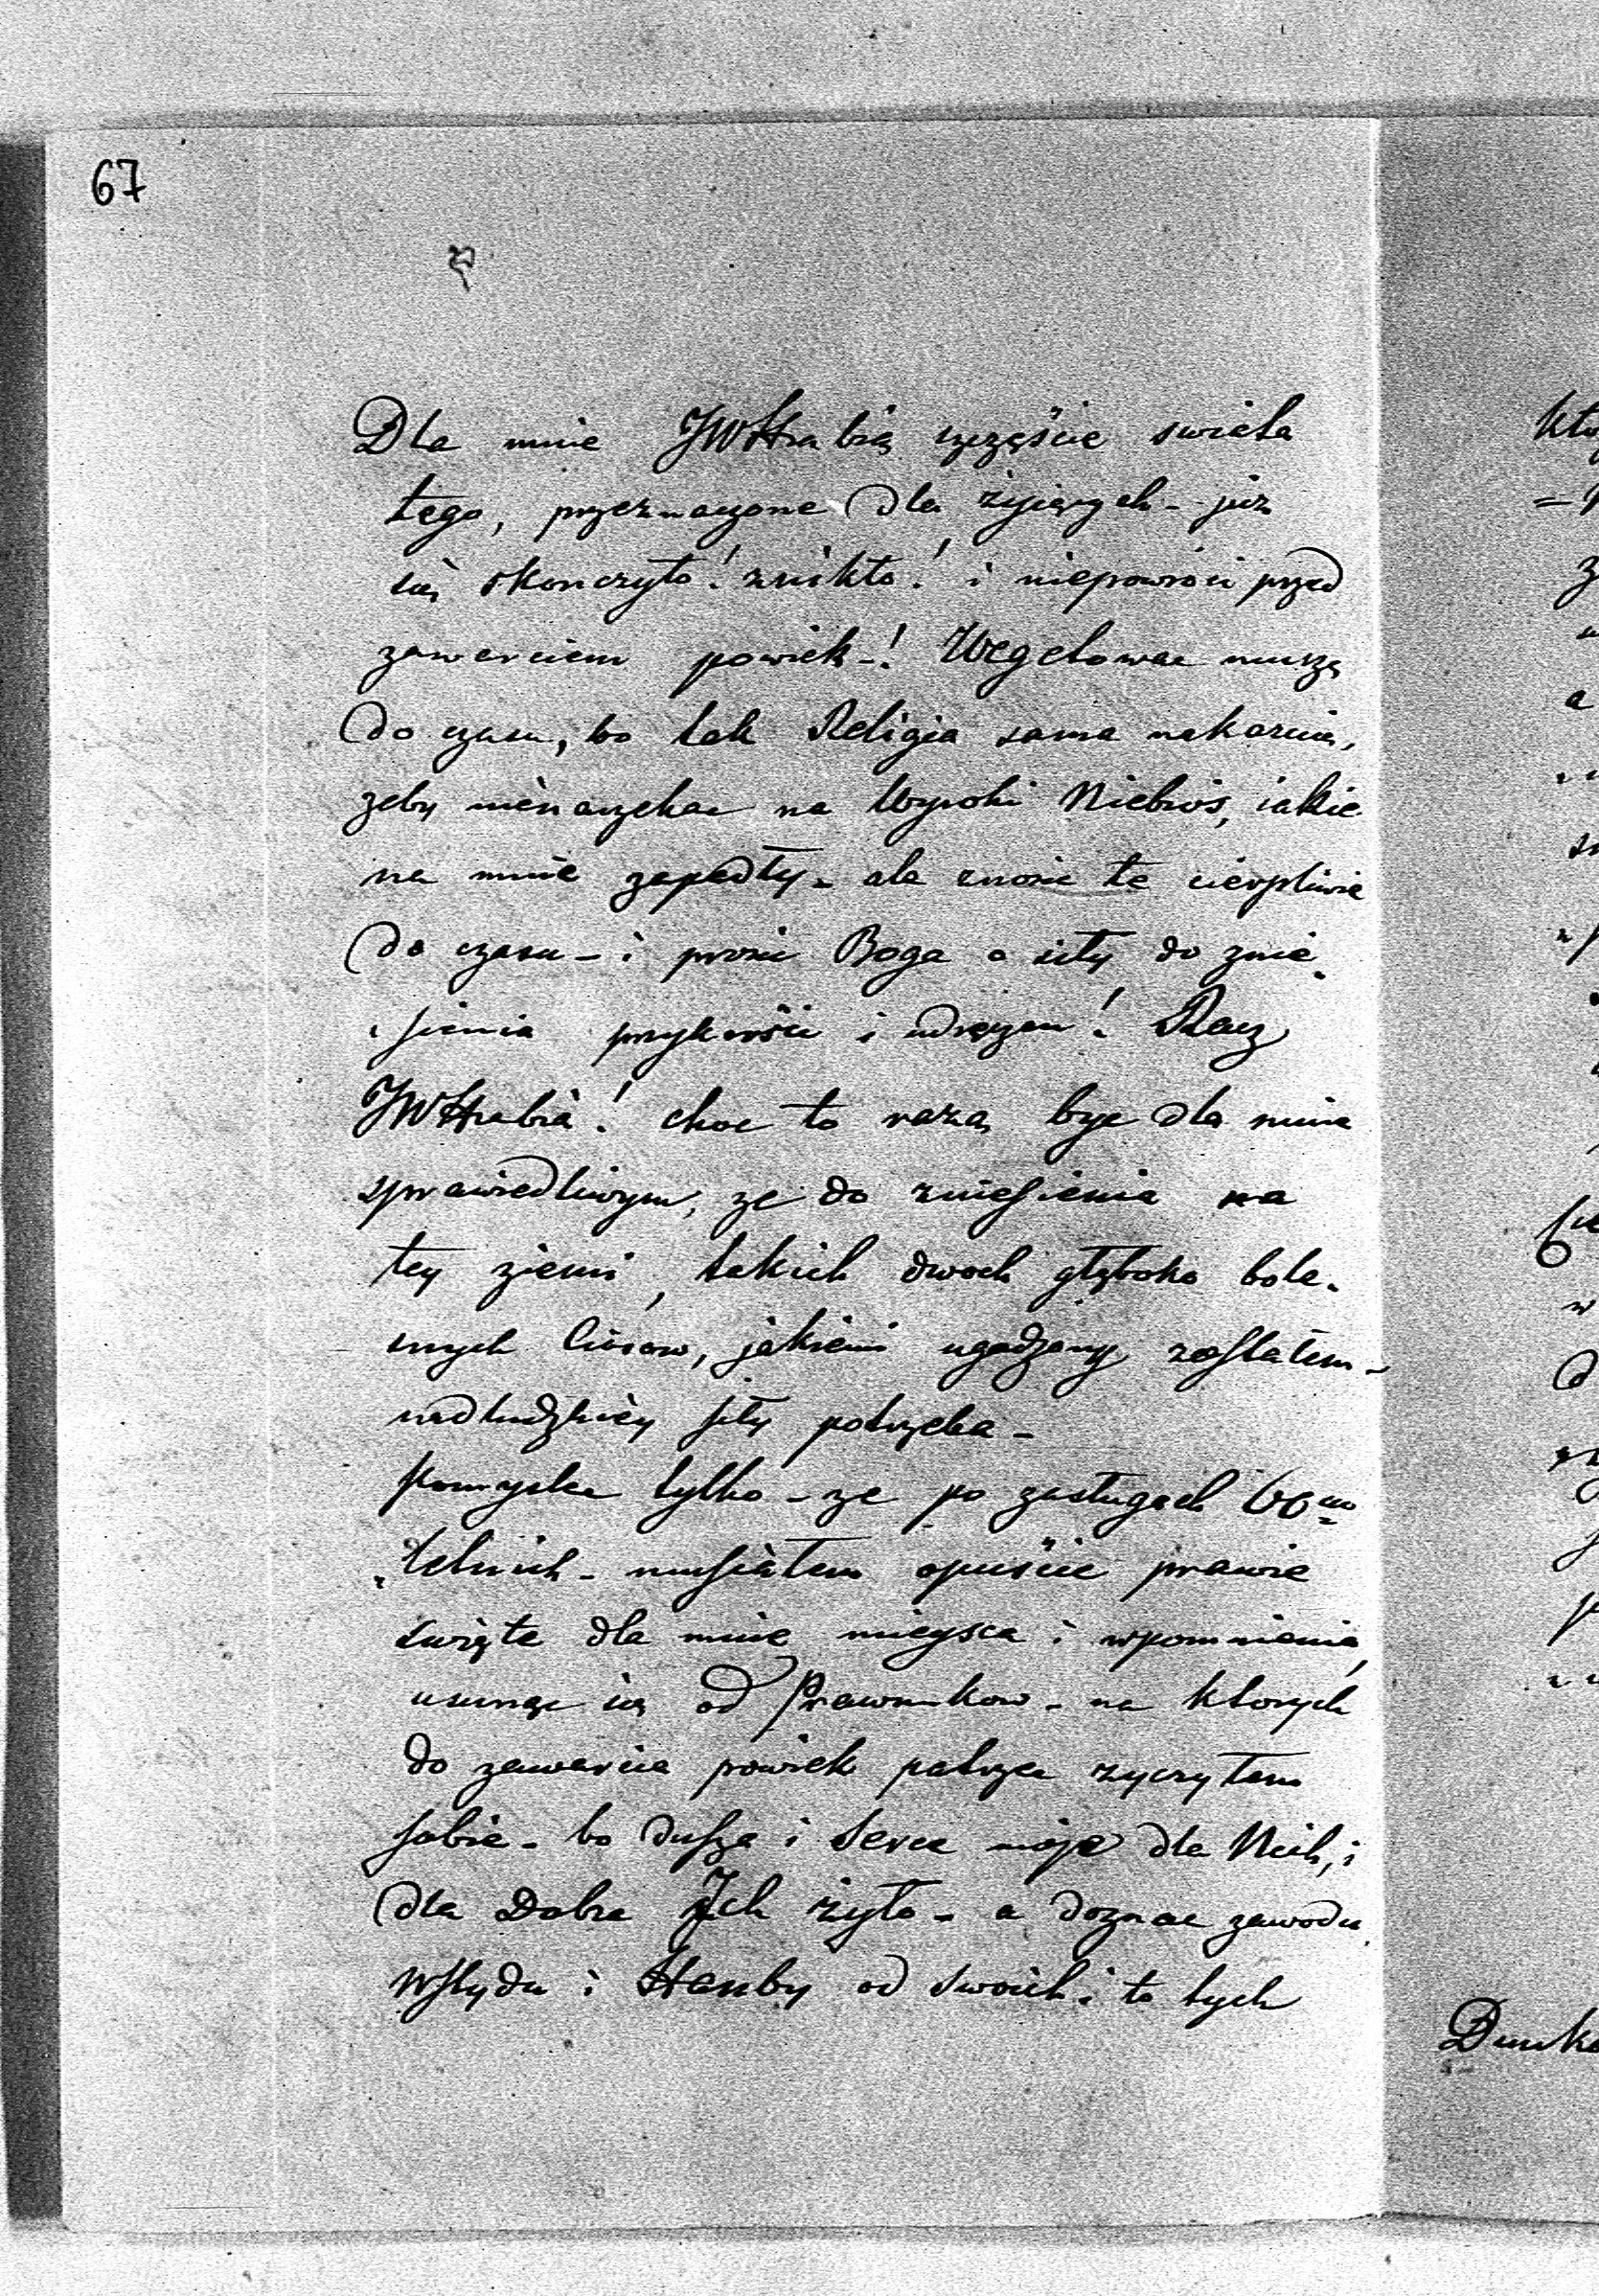 67
Dla mnie JWHrabią szczęście swiata
tego, przeznaczone dla żyiących - już
się skonczyło! znikło! i niepowróci przed
zawarciem powiek -! Wegetowac muszę
do czasu, bo tak Religia sama nakazuie,
zeby nienarzekac na Wyroki Niebios, iakie
na mnie zapadły - ale znosic te cierpliwie
do czasu - i prosic Boga o siły do znie„
„sienia przykrości i udręczen! Racz
JWHrabia! choc to razą byc dla mnie
sprawiedliwym, ze do zniesienia na
tey ziemi, takich dwoch głęboko bole„
snych Ciosow, jakiemi ugodzony zostałem -
nadludzkiey siły potrzeba -
Pomyslec tylko - ze po zasługach 60cio
„letnich - musiałem opuścic prawie
święte dla mnie mieysca i wpomnienia,
usunąc się od Prawnukow - na ktorych
do zawarcia powiek patrzec zyczyłem
sobie - bo dusza i Serce moje dla Nich, i
dla Dobra Jch żyło - a doznac zawodu
Wstydu i Hanby od swoich i to tych